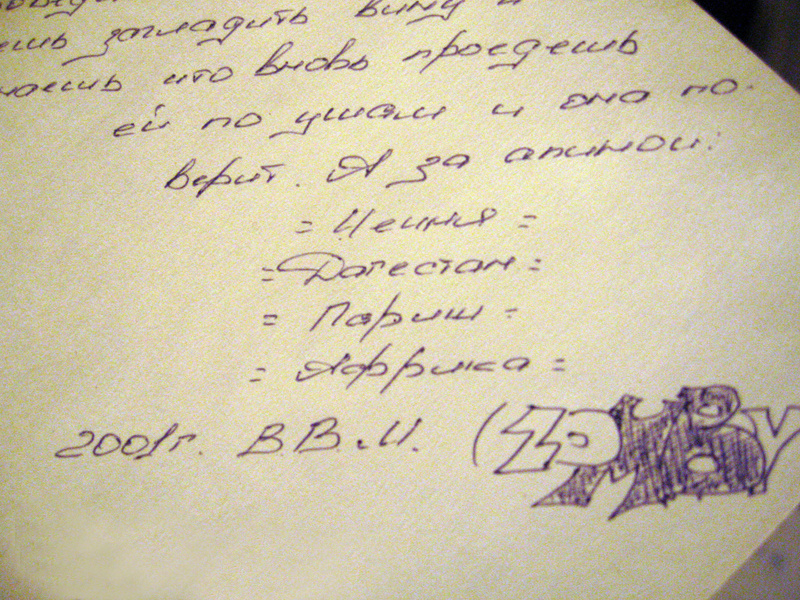 ешь загладить вину и
наешь что вновь проедешь
ей по ушам и она по-
верит. А за спиной:
= Чечня =
= Дагестан =
= Париш =
= Аффрика =
2001г. В.В.И. (